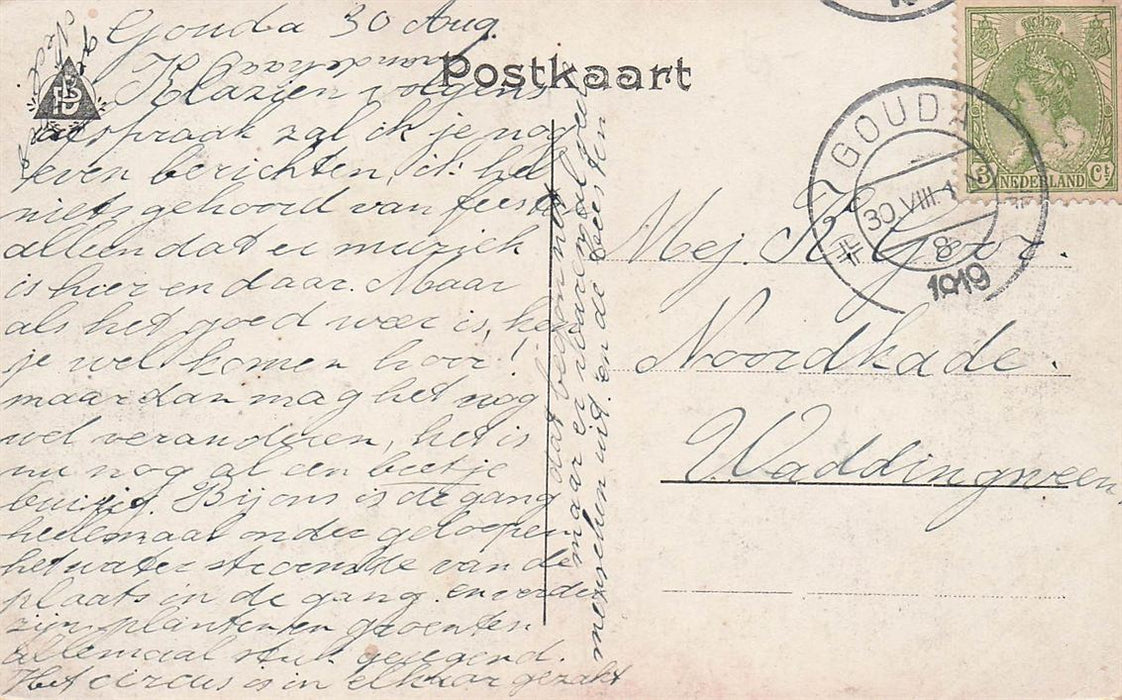 Gouda 30 Aug.
Postkaart
Klazien volgens
afspraak zal ik je nog
even berichten, ik heb
niets gehoord van feesten
alleen dat er muziek
is hier en daar. Maar
als het goed weer is, kan
je wel komen hoor!
maar dan mag het nog
wel veranderen, het is
nu nog al een beetje
buiig. Bij ons is de gang
heelemaal onder geloopen
het water stroomde van de
plaats in de gang. en verder
zijn planten en groenten
allemaal stuk geregend.
Het circus is in elkaar gezakt
dat begon net
maar er waaren al veel
menschen uit. en de beesten
GOUDA
30.VIII.
8
1919
3 Ct
NEDERLAND
Mej. K. Goor.
Noordkade.
Waddingsveen